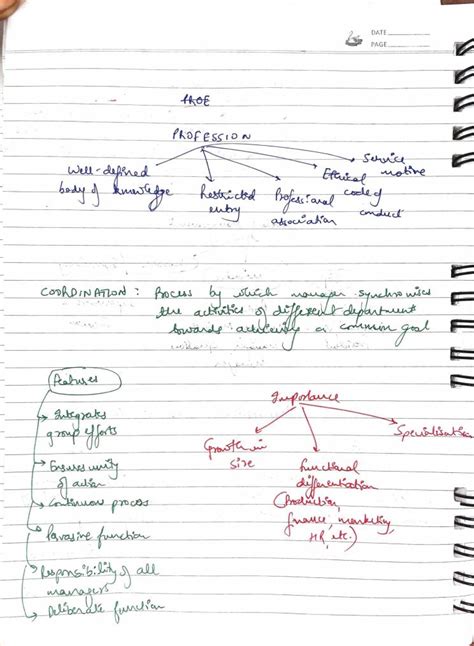 DATE
PAGE
PROFESSION
Well-defined
body of knowledge
Restricted
entry
Professional
association
Ethical
code of
conduct
Service
motive
COORDINATION : Process by which manager synchronises
the activities of different department
towards achieving a common goal
Features
Integrates
group efforts
Ensures unity
of action
Continuous process
Pervasive function
Responsibility of all
managers
Deliberate function
Importance
Growth in
size
Functional
differentiation
(Production,
finance, marketing,
HR, etc.)
Specialisation